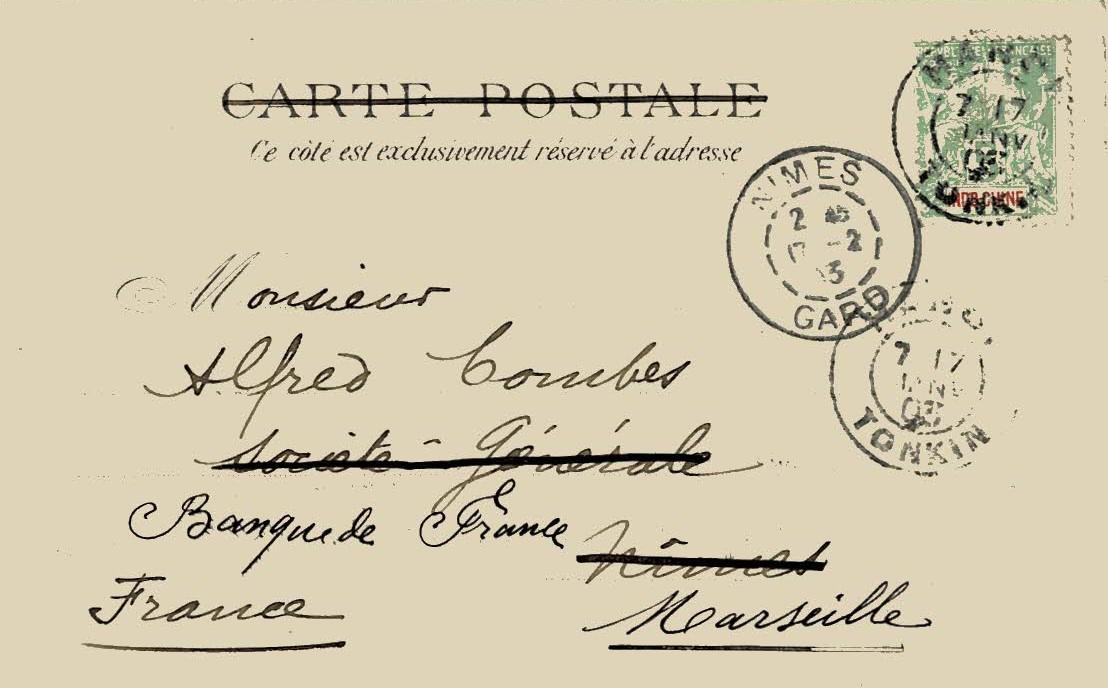 CARTE POSTALE
Ce côté est exclusivement réservé à l'adresse
RÉPUBLIQUE FRANÇAISE
INDO-CHINE
HANOI
7 17
JANV
03
TONKIN
NIMES
2 45
17 -2
03
GARD
HANOI
7 17
JANV
03
TONKIN
Monsieur
Alfred Combes
Société Générale
Banque de France
Nîmes
France
Marseille